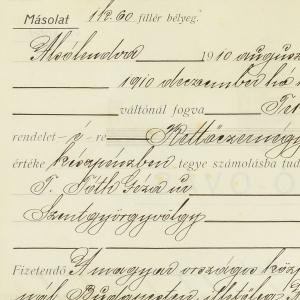 Másolat 1 K. 60 fillér bélyeg.
Alsólendva 1910 augusz
1910 deczember hó
váltónál fogva
rendelet-é-re
értéke készpénzben tegye számolásba tud
T. Tóth Géza úr
Szentgyörgyvölgy
Fizetendő A magyar országos közp
nál Budapesten